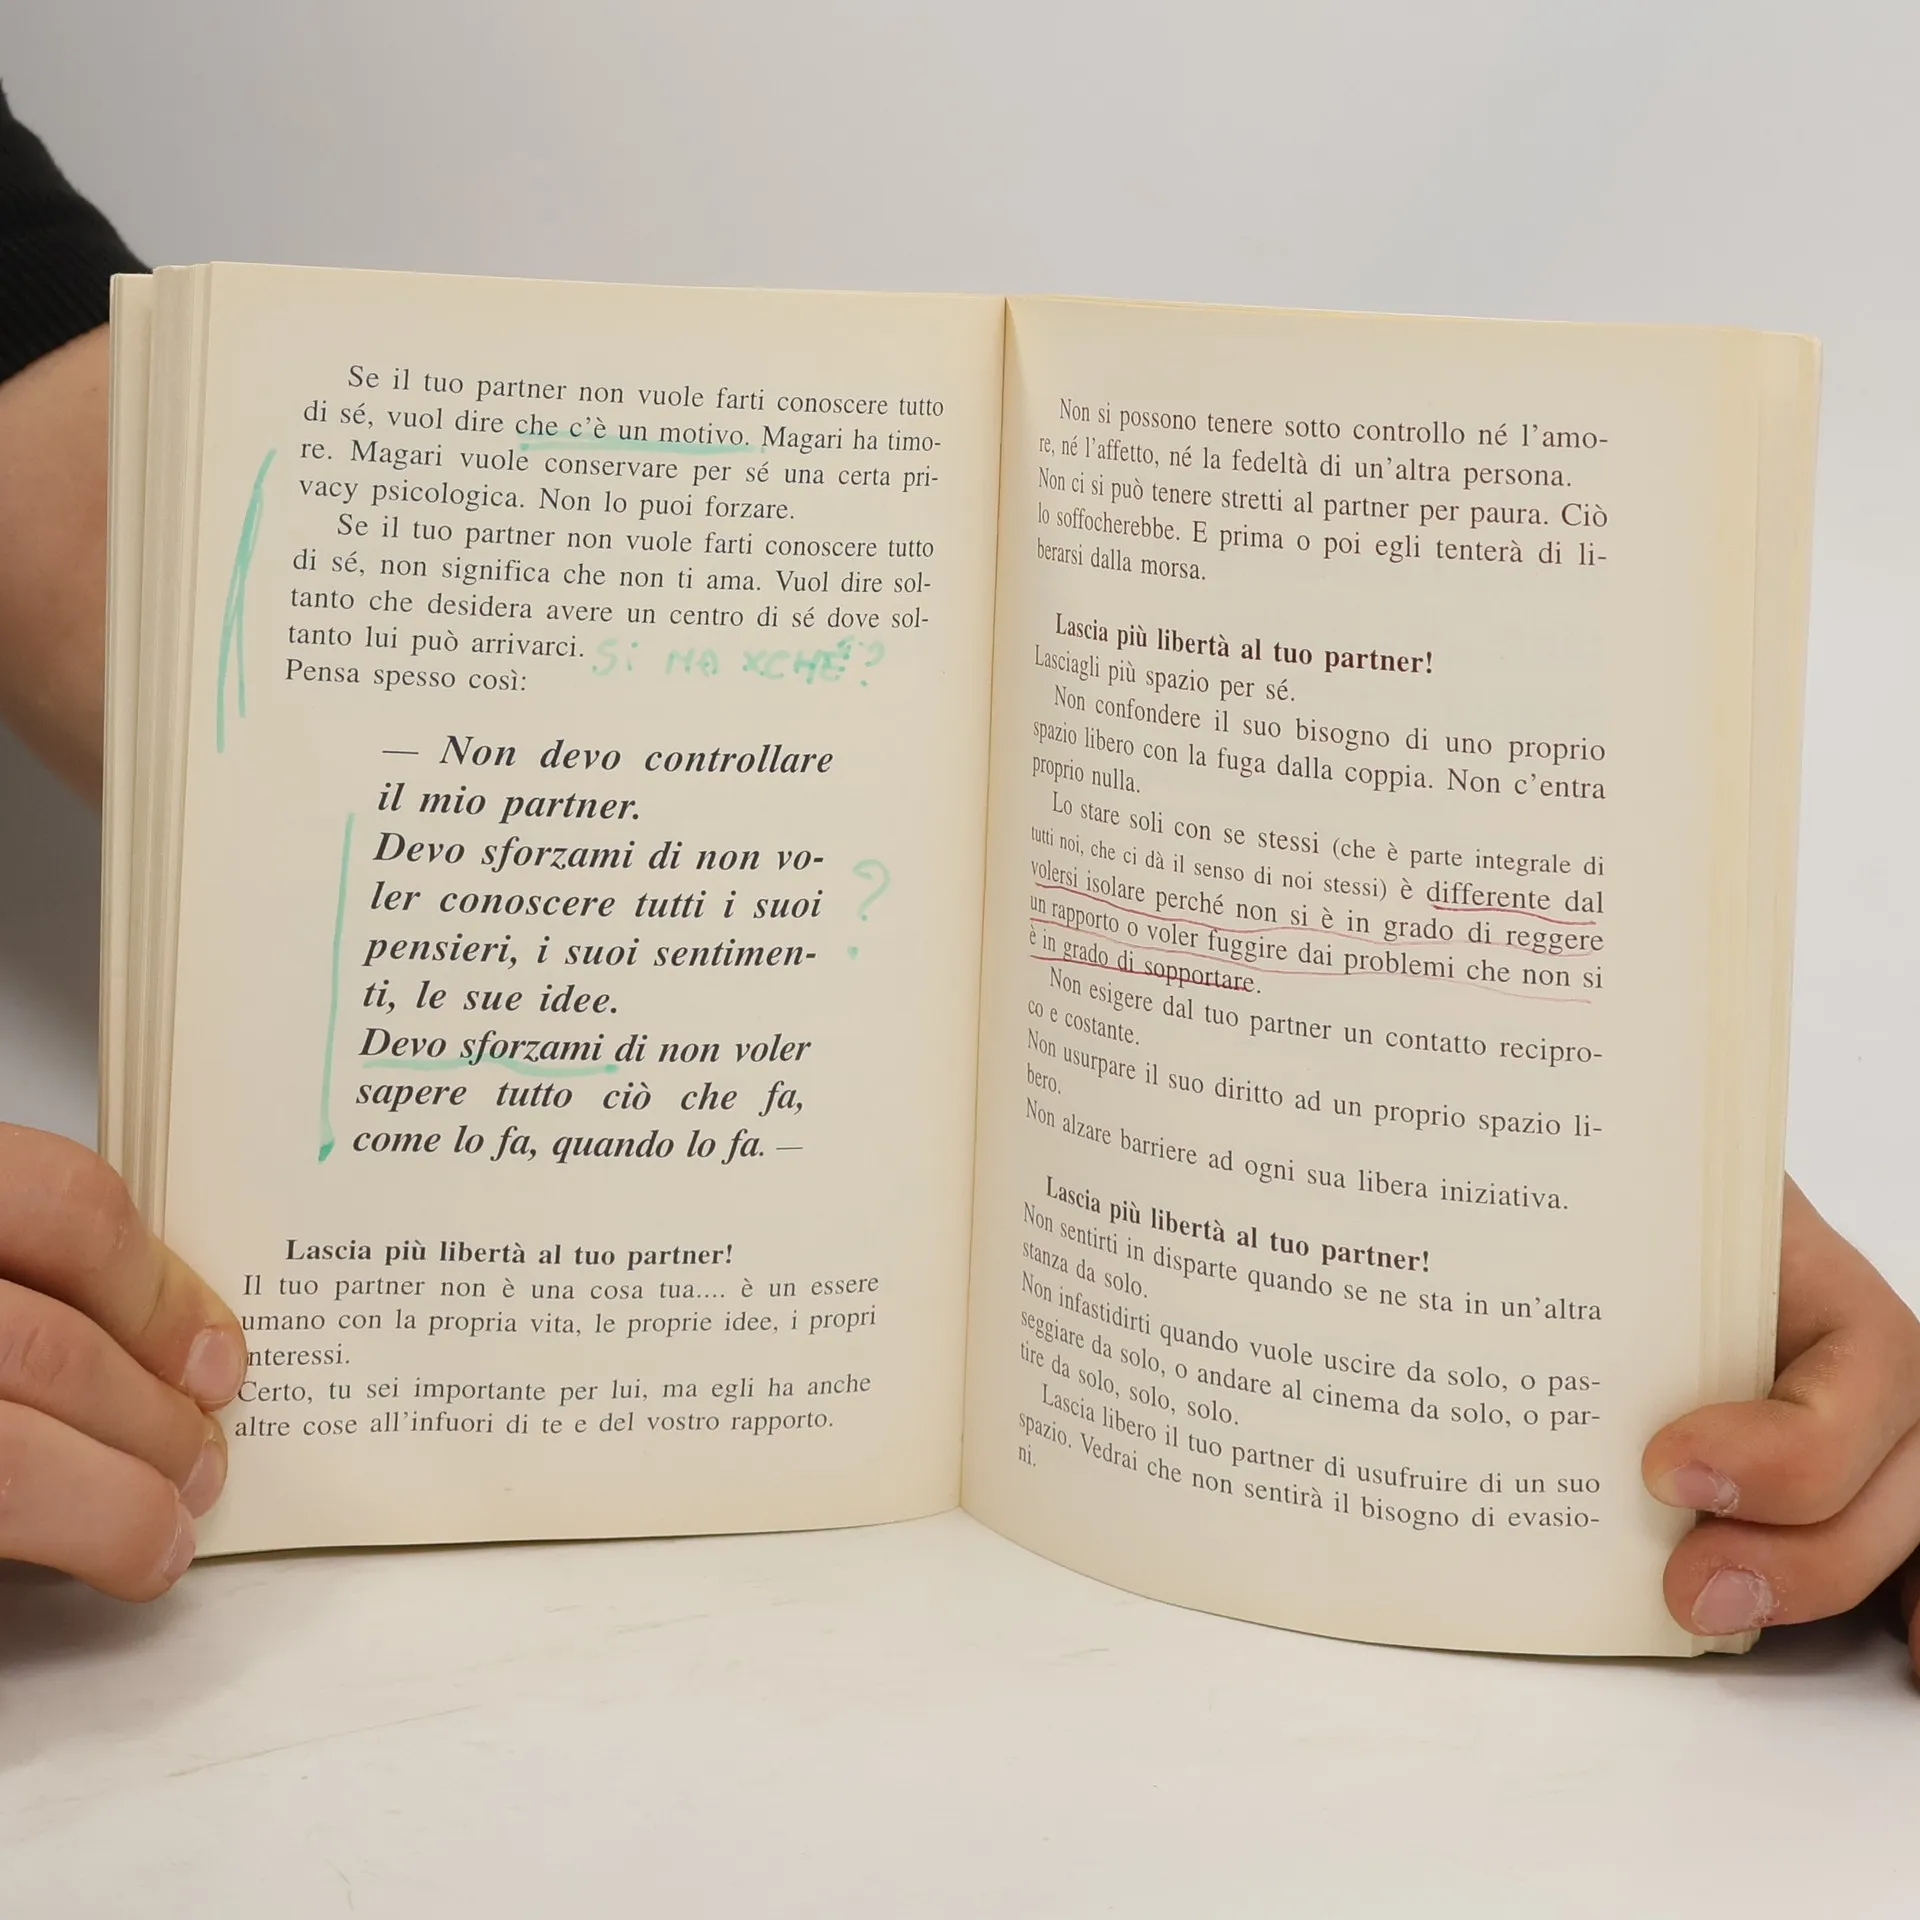 Se il tuo partner non vuole farti conoscere tutto
di sé, vuol dire che c'è un motivo. Magari ha timo-
re. Magari vuole conservare per sé una certa pri-
vacy psicologica. Non lo puoi forzare.
Se il tuo partner non vuole farti conoscere tutto
di sé, non significa che non ti ama. Vuol dire sol-
tanto che desidera avere un centro di sé dove sol-
tanto lui può arrivarci. Si MA XCHÉ?
Pensa spesso così:
— Non devo controllare
il mio partner.
Devo sforzami di non vo-
ler conoscere tutti i suoi
pensieri, i suoi sentimen-
ti, le sue idee.
?
Devo sforzami di non voler
sapere tutto ciò che fa,
come lo fa, quando lo fa. —
Lascia più libertà al tuo partner!
Il tuo partner non è una cosa tua.... è un essere
umano con la propria vita, le proprie idee, i propri
nteressi.
Certo, tu sei importante per lui, ma egli ha anche
altre cose all'infuori di te e del vostro rapporto.
Non si possono tenere sotto controllo né l'amo-
re, né l'affetto, né la fedeltà di un'altra persona.
Non ci si può tenere stretti al partner per paura. Ciò
lo soffocherebbe. E prima o poi egli tenterà di li-
berarsi dalla morsa.
Lascia più libertà al tuo partner!
Lasciagli più spazio per sé.
Non confondere il suo bisogno di uno proprio
spazio libero con la fuga dalla coppia. Non c'entra
proprio nulla.
Lo stare soli con se stessi (che è parte integrale di
tutti noi, che ci dà il senso di noi stessi) è differente dal
volersi isolare perché non si è in grado di reggere
un rapporto o voler fuggire dai problemi che non si
è in grado di sopportare.
Non esigere dal tuo partner un contatto recipro-
co e costante.
Non usurpare il suo diritto ad un proprio spazio li-
bero.
Non alzare barriere ad ogni sua libera iniziativa.
Lascia più libertà al tuo partner!
Non sentirti in disparte quando se ne sta in un'altra
stanza da solo.
Non infastidirti quando vuole uscire da solo, o pas-
seggiare da solo, o andare al cinema da solo, o par-
tire da solo, solo, solo.
Lascia libero il tuo partner di usufruire di un suo
spazio. Vedrai che non sentirà il bisogno di evasio-
ni.